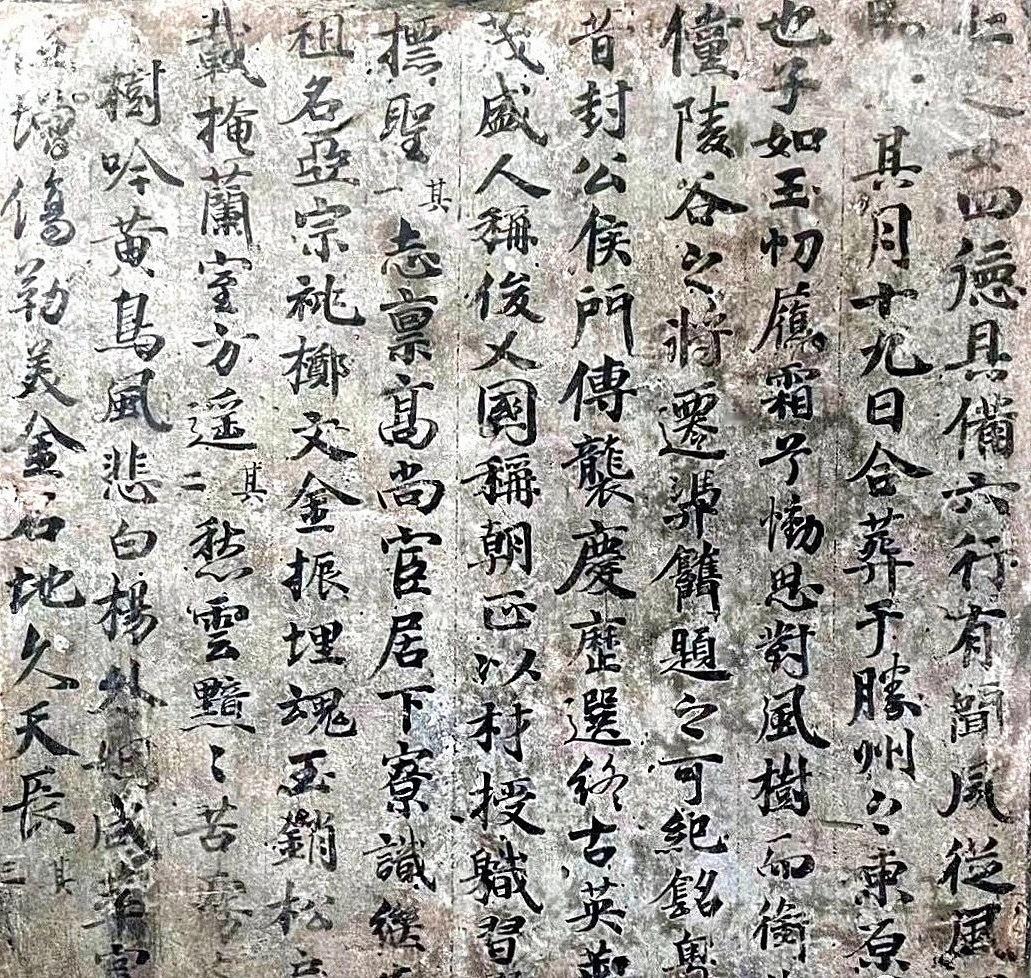 四德具備六行有聞夙從風
其月十九日合葬于勝州〻東原
也子如玉忉膺霜兮慟思對風樹而銜
僮陵谷之將遷憑雕題之可紀銘粵
昔封公侯門傳襲慶歷選終古英
茂盛人稱俊乂國稱朝正以材授職習
標聖其一志禀高尚宦居下寮識繼
祖名亞宗祧擲文金振埋魂玉銷松
戢掩蘭室方遥其二愁雲黯〻苦霧
樹吟黄鳥風悲白楊
增傷勒美金石地久天長其三